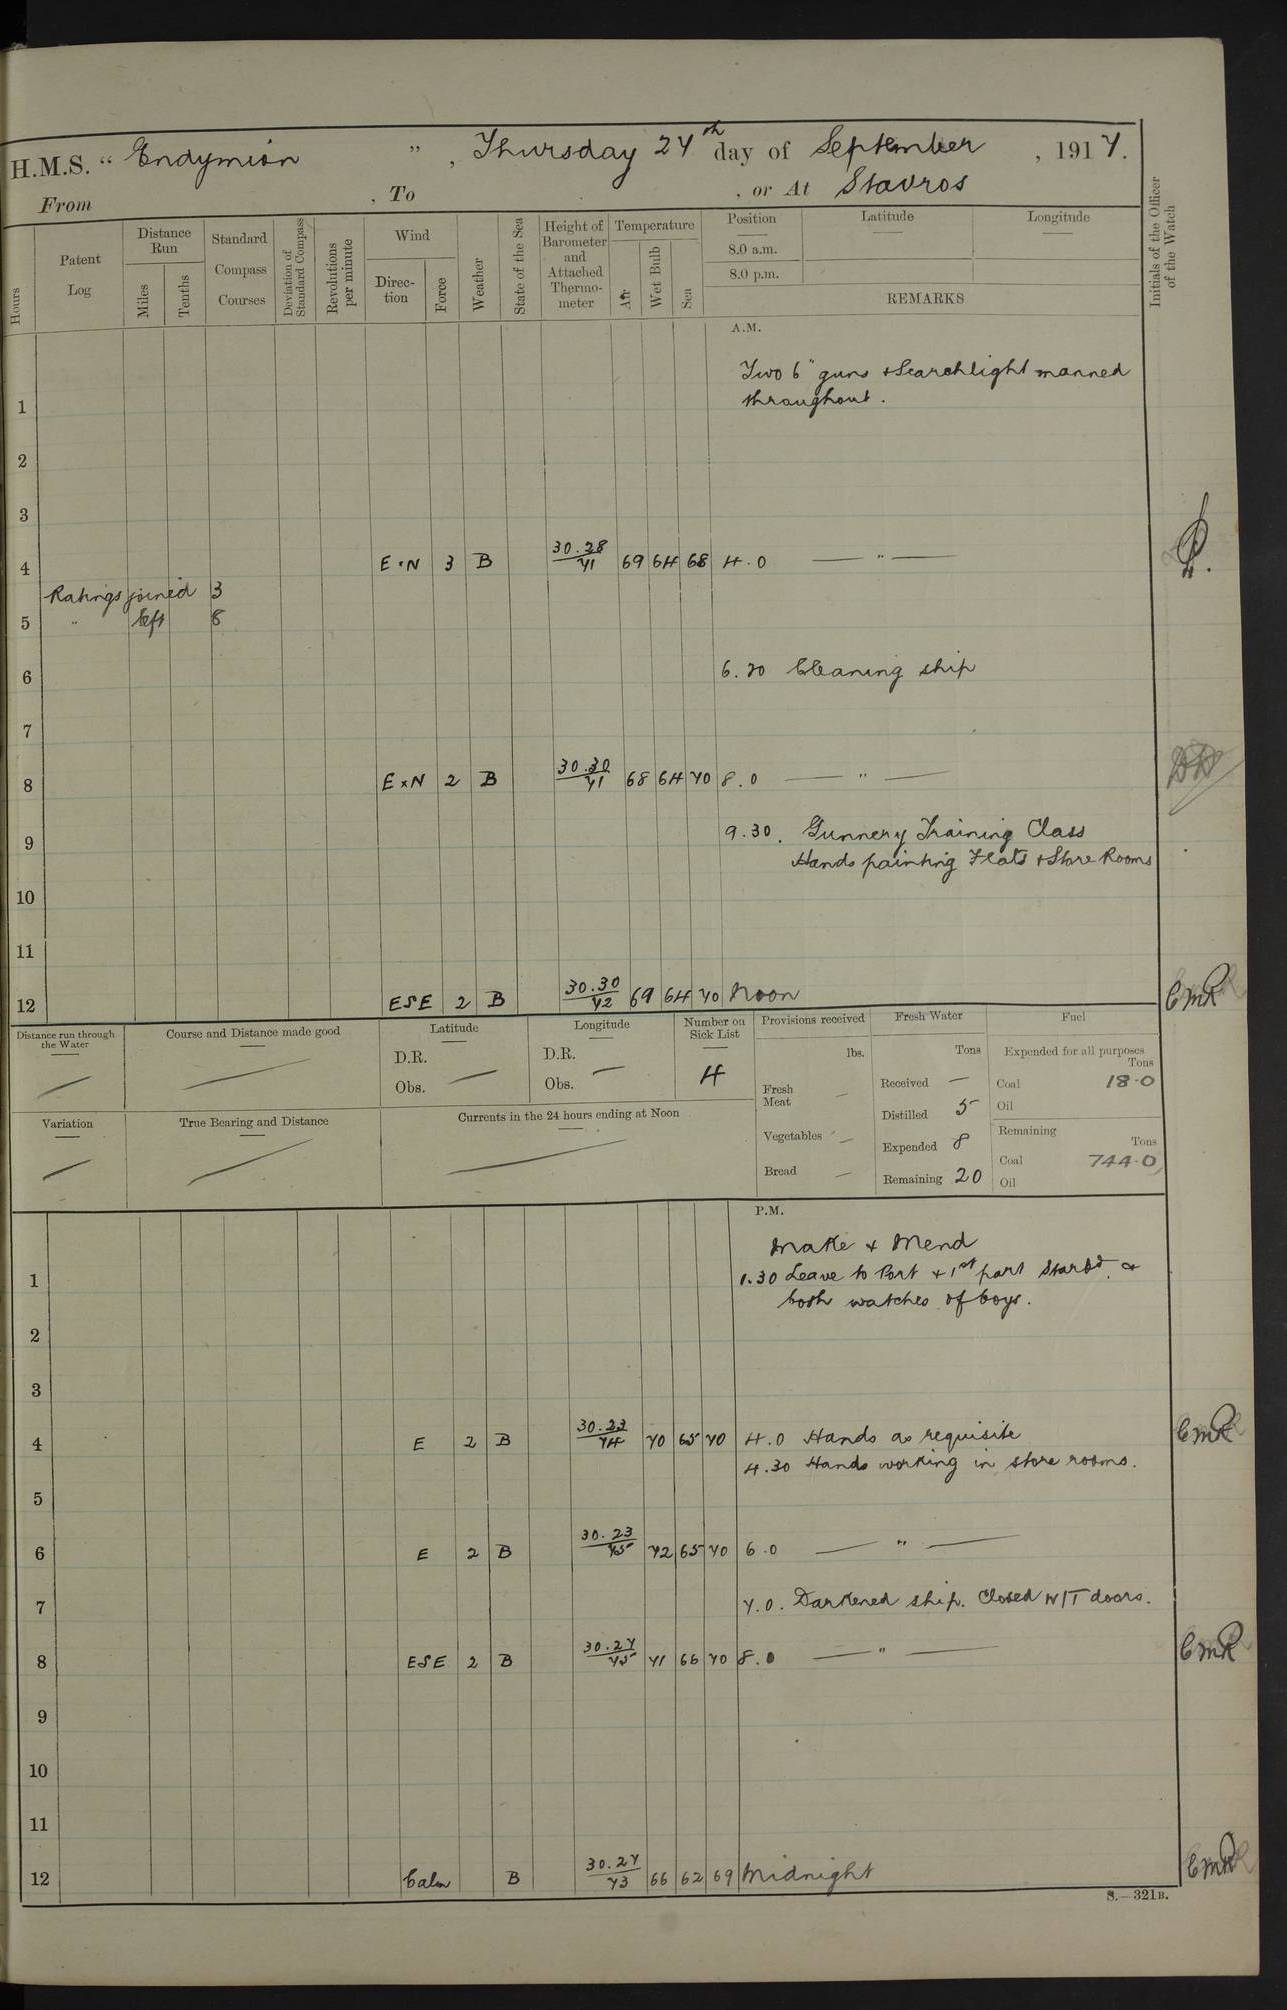 H.M.S. “ Endymion ” , Thursday 27th day of September , 1917.
From , To , or At Stavros
Hours
Patent Log
Distance Run
Miles
Tenths
Standard Compass Courses
Deviation of Standard Compass
Revolutions per minute
Wind
Direction
Force
Weather
State of the Sea
Height of Barometer and Attached Thermometer
Temperature
Air
Wet Bulb
Sea
Position
8.0 a.m.
8.0 p.m.
Latitude
Longitude
REMARKS
Initials of the Officer of the Watch
A.M.
Two 6" guns + Searchlight manned
1 throughout.
2
3
4 E×N 3 B 30.28/71 69 64 68 4.0 — " —
Ratings joined 3
5 " left 8
6 6.20 Cleaning ship
7
8 E×N 2 B 30.30/71 68 64 70 8.0 — " —
9 9.30. Gunnery Training Class
Hands painting Flats + Store Rooms
10
11
12 ESE 2 B 30.30/72 69 64 70 Noon CMR
Distance run through the Water
Course and Distance made good
Latitude
D.R.
Obs. —
Longitude
D.R. —
Obs.
Number on Sick List
4
Provisions received
lbs.
Fresh Meat —
Vegetables —
Bread —
Fresh Water
Tons
Received —
Distilled 5
Expended 8
Remaining 20
Fuel
Expended for all purposes
Tons
Coal 18.0
Oil
Remaining
Tons
Coal 744.0
Oil
Variation
True Bearing and Distance
Currents in the 24 hours ending at Noon
P.M.
Make + Mend
1 1.30 Leave to Port + 1st part Starbd. +
both watches of boys.
2
3
4 E 2 B 30.23/74 70 65 70 4.0 Hands as requisite CMR
4.30 Hands working in store rooms.
5
6 E 2 B 30.23/75 72 65 70 6.0 — " —
7 7.0. Darkened ship. Closed W/T doors.
8 ESE 2 B 30.27/75 71 66 70 8.0 — " — CMR
9
10
11
12 Calm B 30.27/73 66 62 69 Midnight CMR
S.—321B.